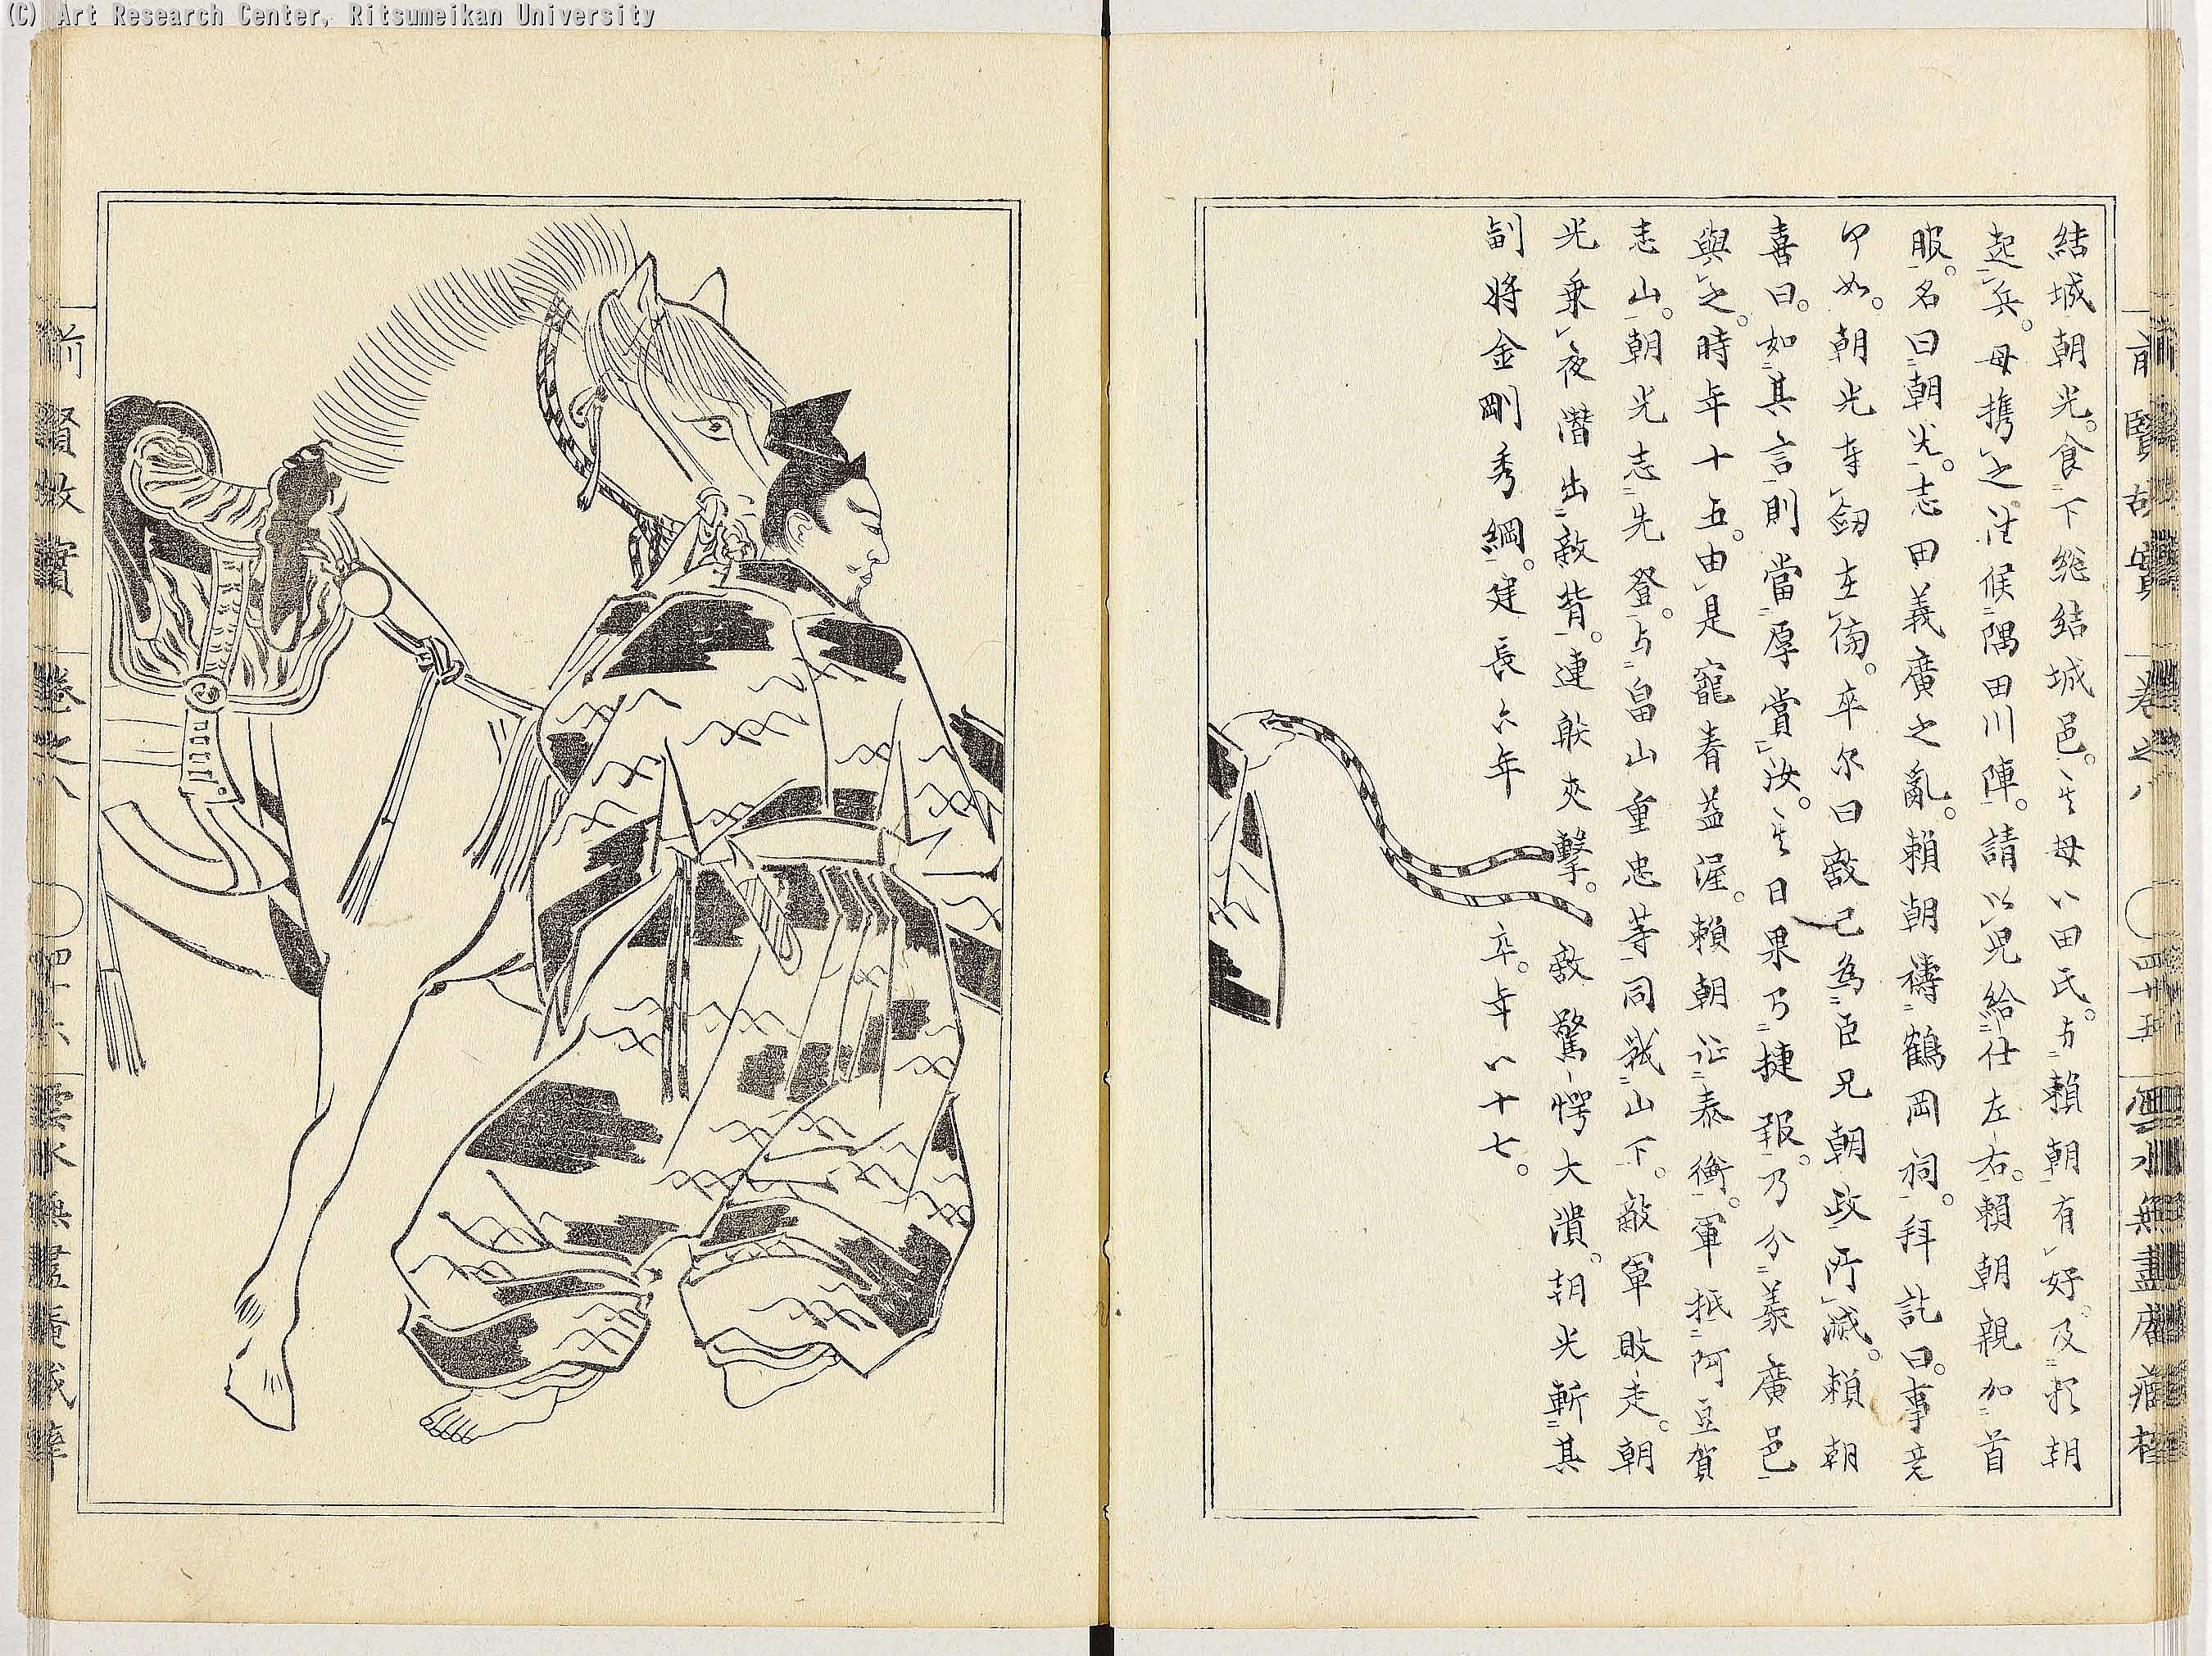 (C) Art Research Center, Ritsumeikan University
結城朝光。食下総結城邑。其母八田氏。与頼朝有好。及頼朝
起兵。母携之往候隅田川陣。請以児給仕左右。頼朝親加首
服。名曰朝光。志田義廣之亂。頼朝禱鶴岡祠。拜託曰。事竟
何如。朝光奉劔在傍。卒尔曰敵已為臣兄朝政所滅。頼朝
喜曰。如其言則當厚賞汝。其日果乃捷報。乃分義廣邑
與之。時年十五。由是寵眷益渥。頼朝征泰衡。軍抵阿豆賀
志山。朝光志先登。与畠山重忠等同戦山下。敵軍敗走。朝
光乗夜潜出敵背。連發夾擊。敵驚愕大潰。朝光斬其
副将金剛秀綱。建長六年卒。年八十七。
前賢故實
巻之八
四十五
雲水無盡庵
前賢故實
巻之八